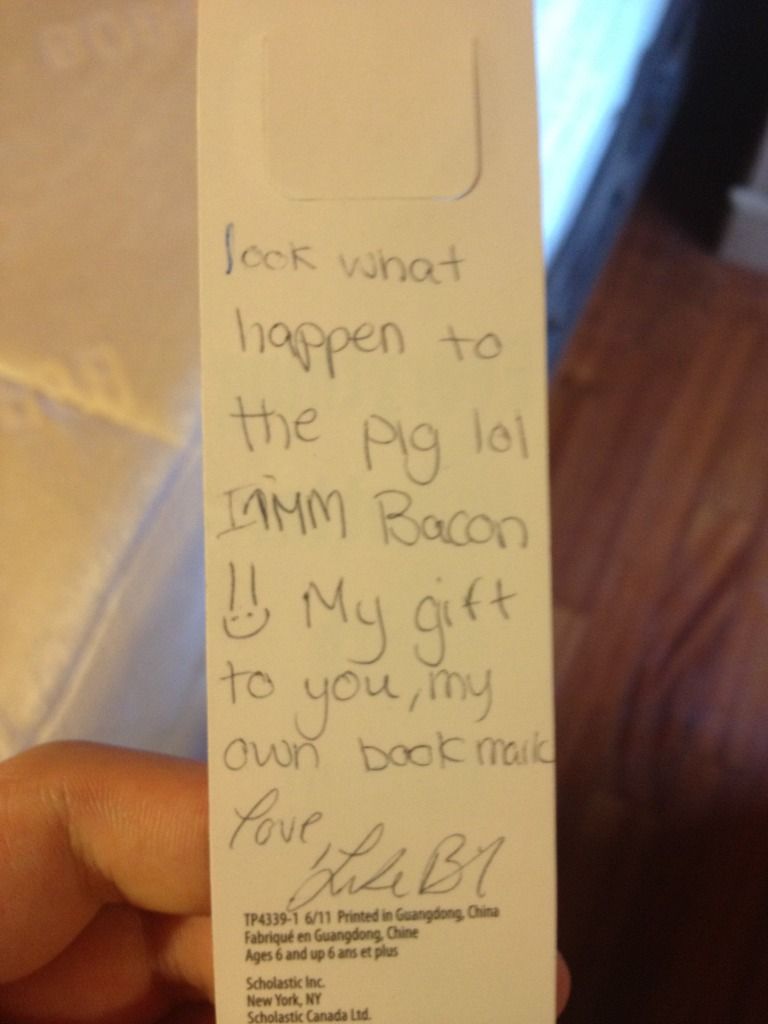 look what
happen to
the pig lol
MMM Bacon
!! My gift
to you, my
own bookmark
Love,
TP4339-1 6/11 Printed in Guangdong, China
Fabriqué en Guangdong, Chine
Ages 6 and up 6 ans et plus
Scholastic Inc.
New York, NY
Scholastic Canada Ltd.